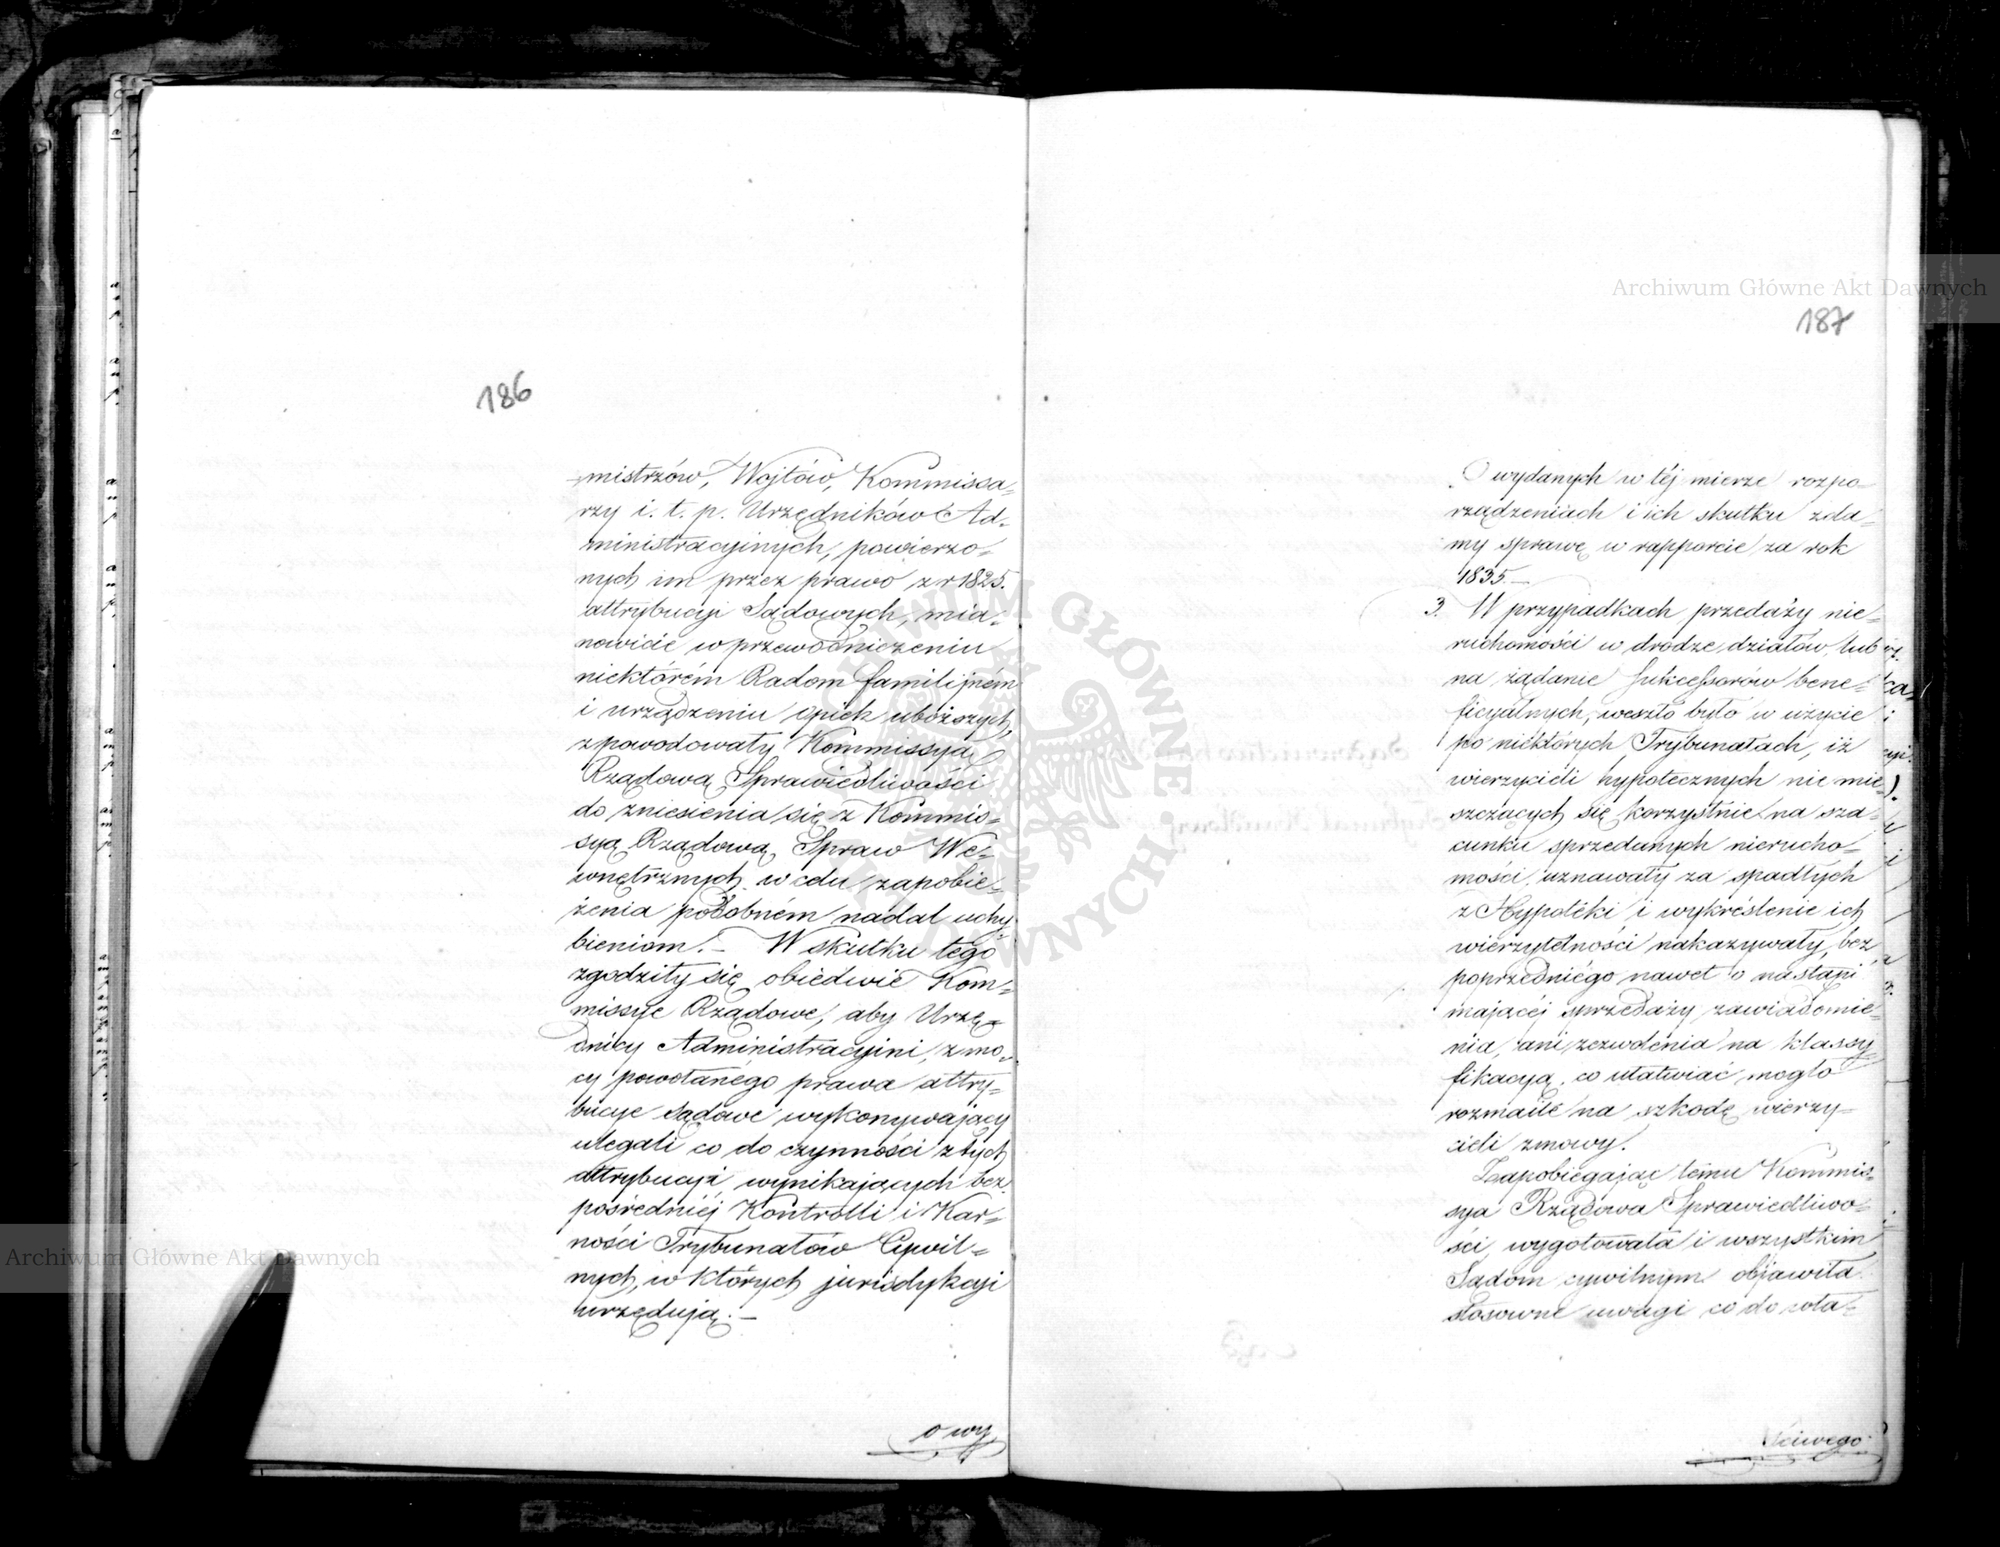 186
mistrzów, Wojtów, Kommissa-
rzy i. t. p. Urzędników Ad-
ministracyjnych, powierzo-
nych im przez prawo z r 1825.
attrybucyi Sądowych, mia-
nowicie w przewodniczeniu
niektórém Radom familijném
i urządzeniu opiek uboższych,
zpowodowały Kommissyą
Rządową Sprawiedliwości
do zniesienia się z Kommis-
syą Rządową Spraw We-
wnętrznych w celu zapobie-
żenia podobném nadal uchy-
bieniom. – W skutku tego
zgodziły się obiedwie Kom-
missye Rządowe, aby Urzę-
dnicy Administracyjni, z mo-
cy powołanégo prawa attry-
bucye sądowe wykonywający
ulegali co do czynności z tych
attrybucyi wynikających bez-
pośredniéj Kontrolli i Kar-
ności Trybunałów Cywil-
nych, w których jurisdykcyi
urzędują. –
o wy
187
O wydanych w téj mierze rozpo-
rządzeniach i ich skutku zda-
my sprawę w rapporcie za rok
1835. –
3. W przypadkach przedaży nie-
ruchomości w drodze działów, lub
na żądanie Sukcessorów bene-
ficyalnych, weszło było w użycie
po niektórych Trybunałach, iż
wierzycieli hypotecznych nie mie-
szczących się korzystnie na sza-
cunku sprzedanych nierucho-
mości, uznawały za spadłych
z Hypotéki i wykréslenie ich
wierzytelności nakazywały, bez
poprzedniégo nawet o nastąpi
mającéj sprzedaży zawiadomie-
nia, ani zezwolenia na klassy-
fikacyą, co ułatwiać mogło
rozmaite na szkodę wierzy-
cieli zmowy.
Zapobiegając temu Kommis-
sya Rządowa Sprawiedliwo-
ści, wygotowała i wszystkim
Sądom cywilnym objawiła
stosowne uwagi co do wła-
ściwego
Archiwum Główne Akt Dawnych
Archiwum Główne Akt Dawnych
ARCHIWUM GŁÓWNE AKT DAWNYCH